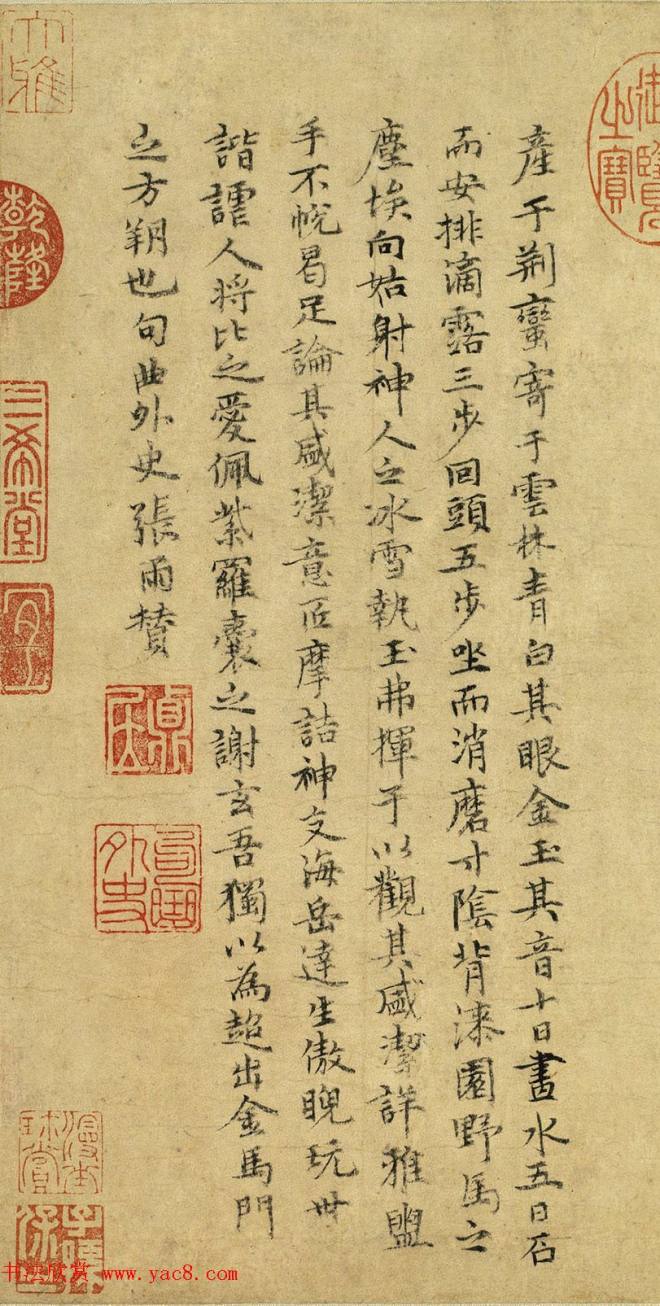 御覽之寶
產于荊蠻寄于雲林青白其眼金玉其音十日畫水五日石
而安排滴露三步回頭五步坐而消磨寸陰背漆園野馬之
塵埃向姑射神人之冰雪執玉弗揮于以觀其盛潔詳雅盥
手不帨曷足論其盛潔意匠摩詰神交海岳達生傲睨玩世
諧謔人將比之愛佩紫羅囊之謝玄吾獨以為超出金馬門
之方朔也句曲外史張雨贊
句曲外史
大雅
乾隆
三希堂
书法欣赏 www.yac8.com